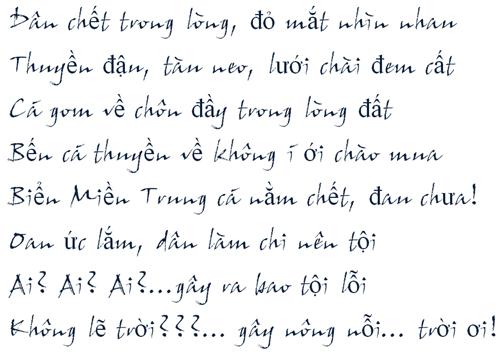 Dân chết trong lòng, đỏ mắt nhìn nhau
Thuyền đậu, tàu neo, lưới chài đem cất
Cá gom về chôn đầy trong lòng đất
Bến cá thuyền về không í ới chào mua
Biển Miền Trung cá nằm chết, đau chưa!
Oan ức lắm, dân làm chi nên tội
Ai? Ai? Ai?...gây ra bao tội lỗi
Không lẽ trời???... gây nông nỗi... trời ơi!